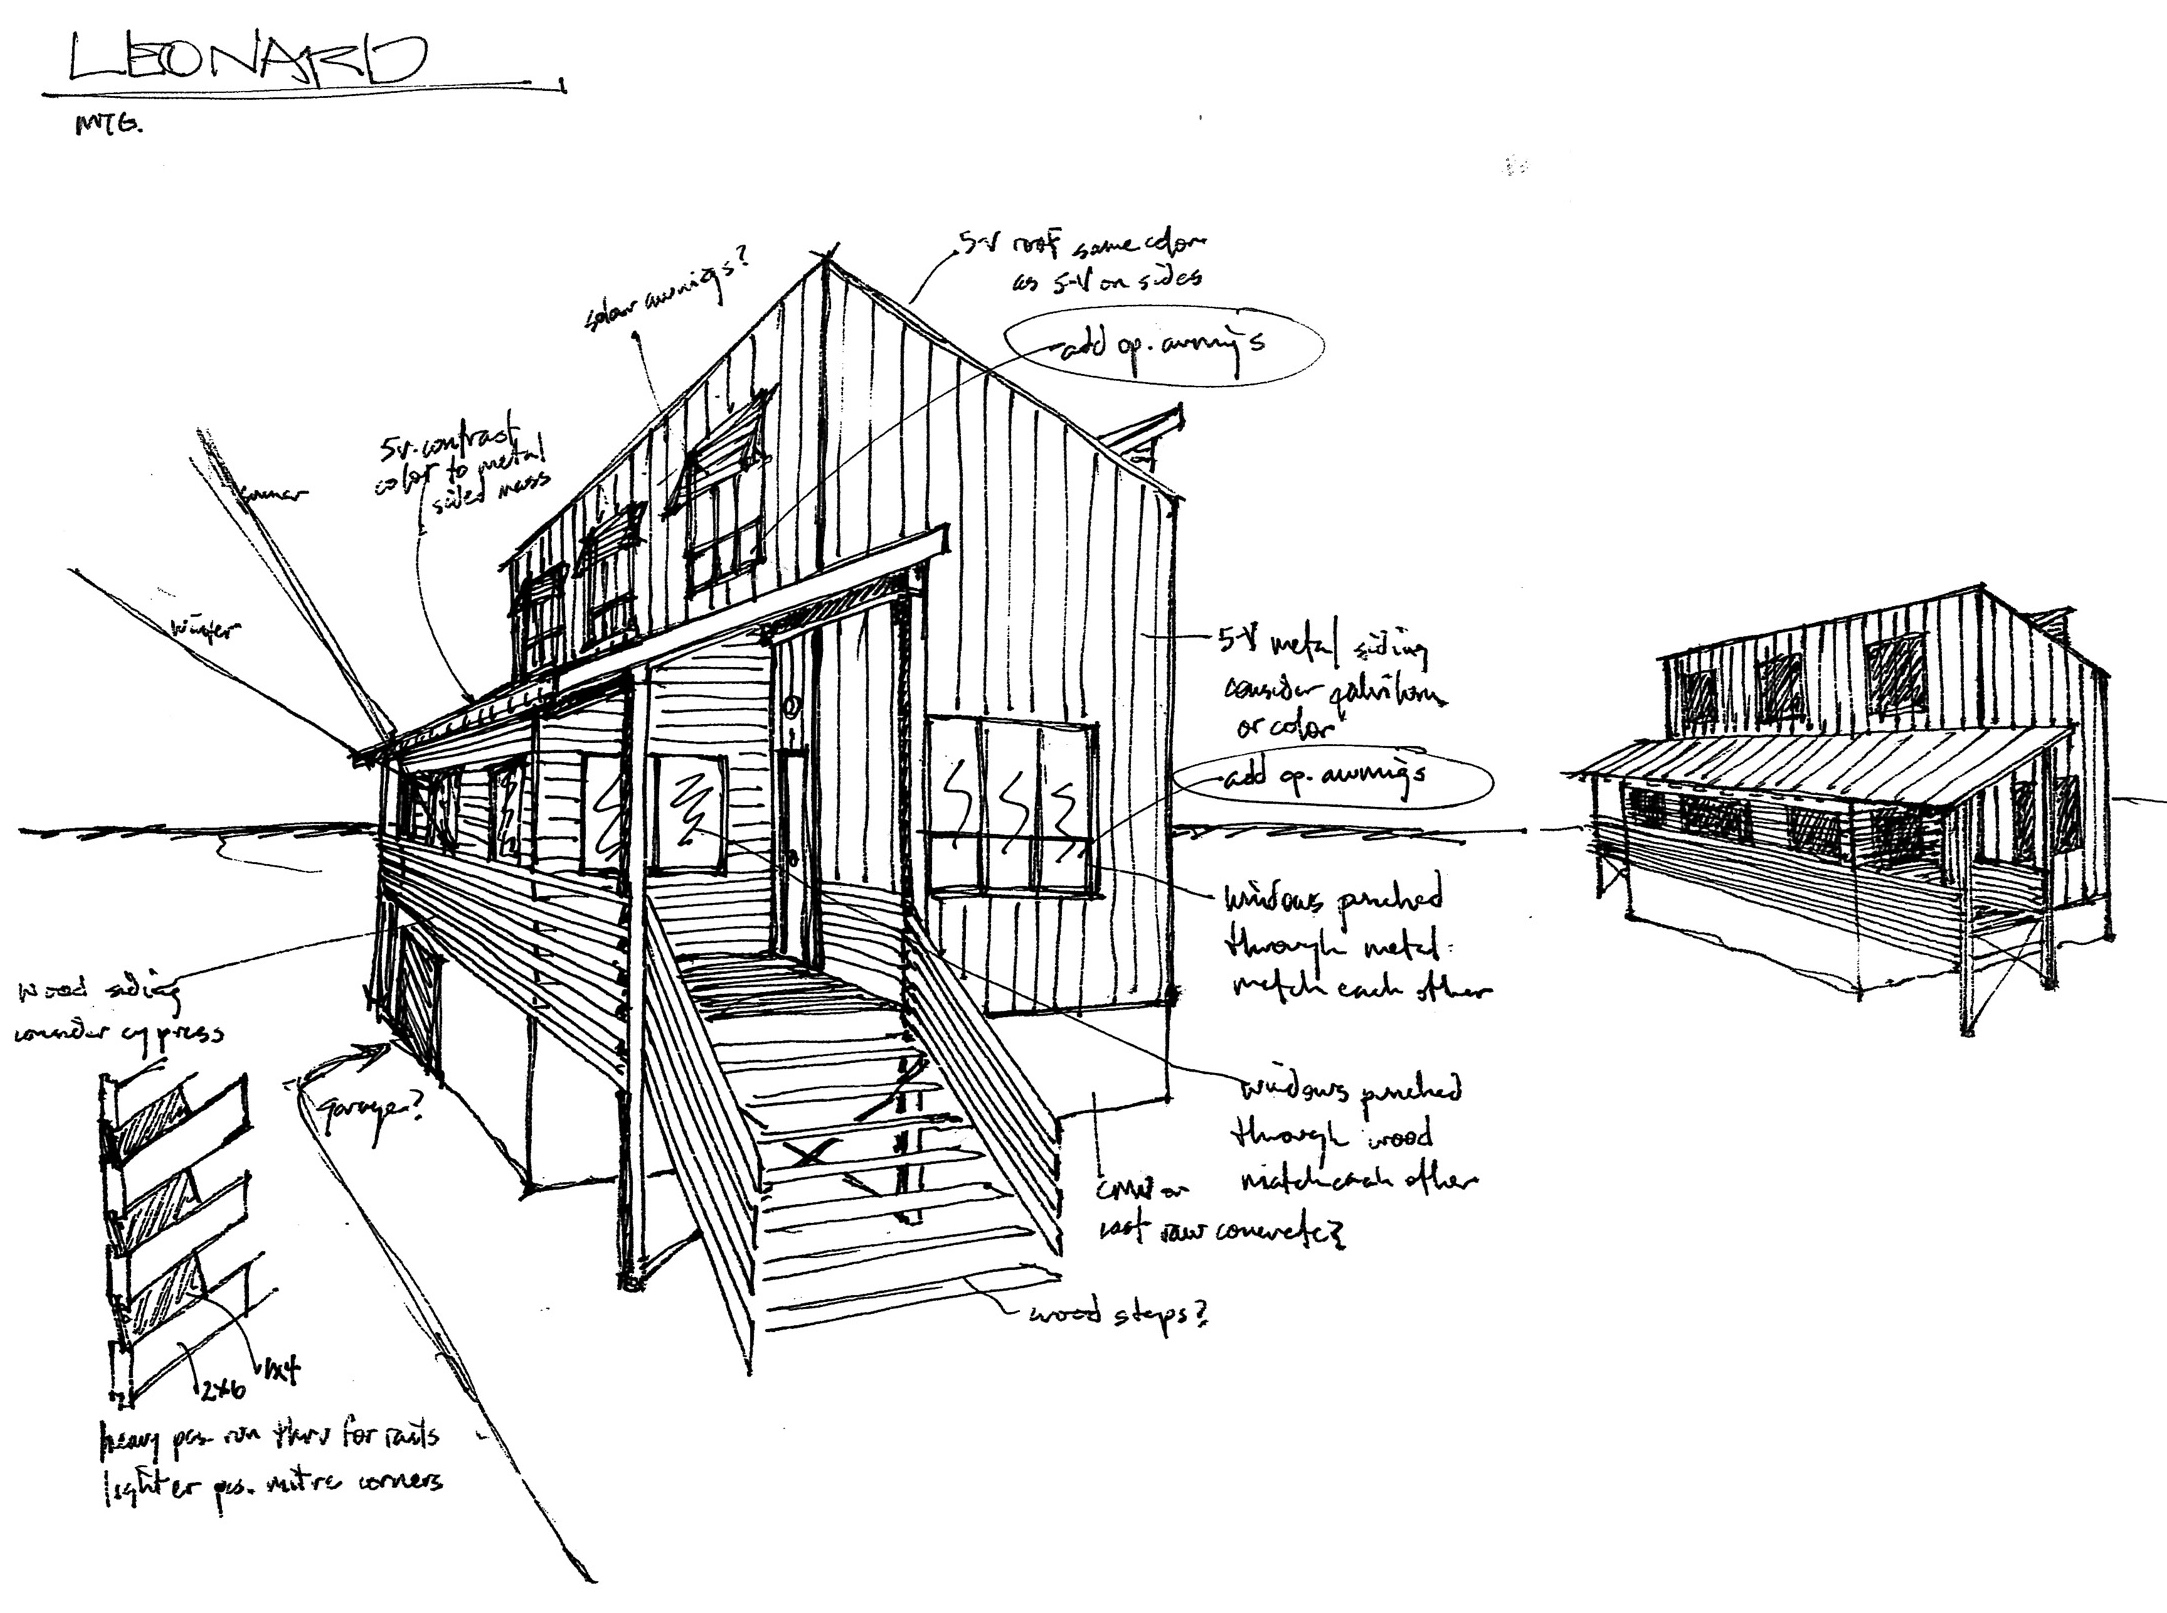 LEONARD
MTG.
5-V roof same color
as 5-V on sides
solar awnings?
add op. awnings
5v. contrast
color to metal
sided mass
summer
winter
5-V metal siding
consider galvalume
or color
add op. awnings
windows punched
through metal
match each other
wood siding
consider cypress
garage?
windows punched
through wood
match each other
CMU or
cast raw concrete?
wood steps?
1x4
2x6
heavy pcs. run thru for rails
lighter pcs. mitre corners